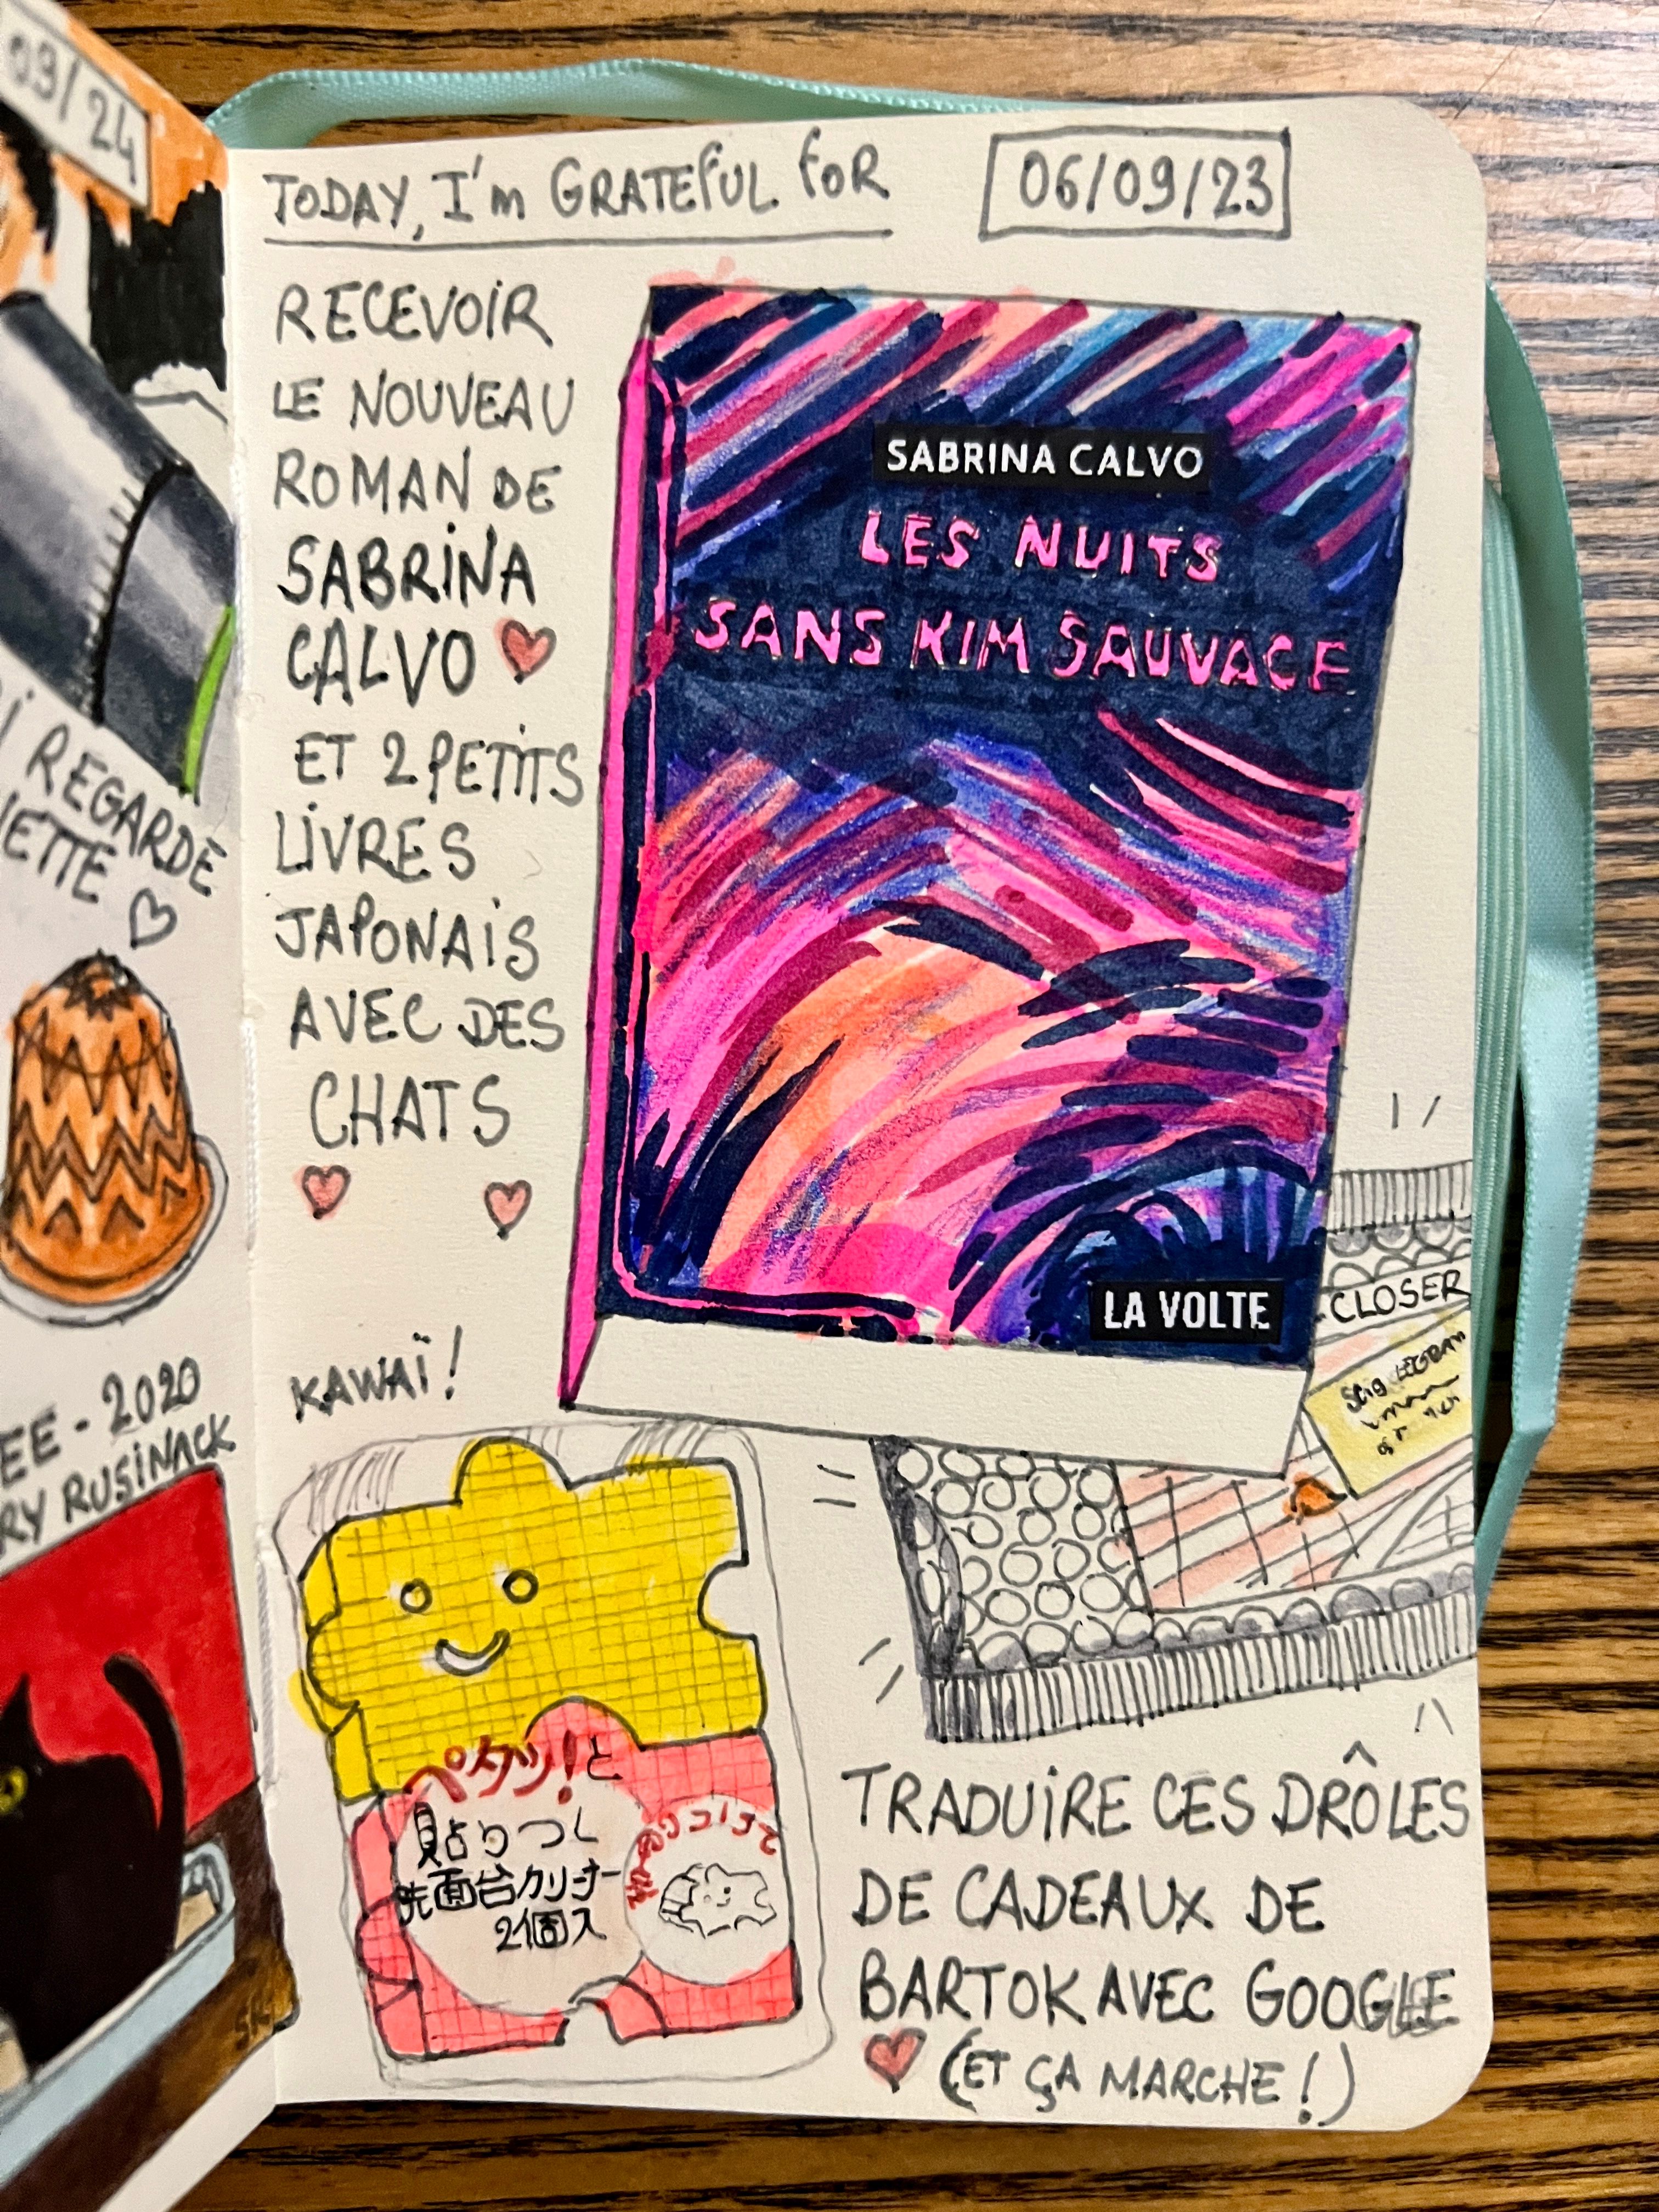 09/24
REGARDE
EE - 2020
RY RUSINACK
TODAY, I'm GRATEFUL FOR
06/09/23
RECEVOIR
LE NOUVEAU
ROMAN DE
SABRINA
CALVO
ET 2 PETITS
LIVRES
JAPONAIS
AVEC DES
CHATS
SABRINA CALVO
LES NUITS
SANS KIM SAUVAGE
LA VOLTE
CLOSER
KAWAÏ!
ペタッ!と
貼りつく
洗面台クリーナー
2個入
TRADUIRE CES DRÔLES
DE CADEAUX DE
BARTOK AVEC GOOGLE
(ET ÇA MARCHE!)